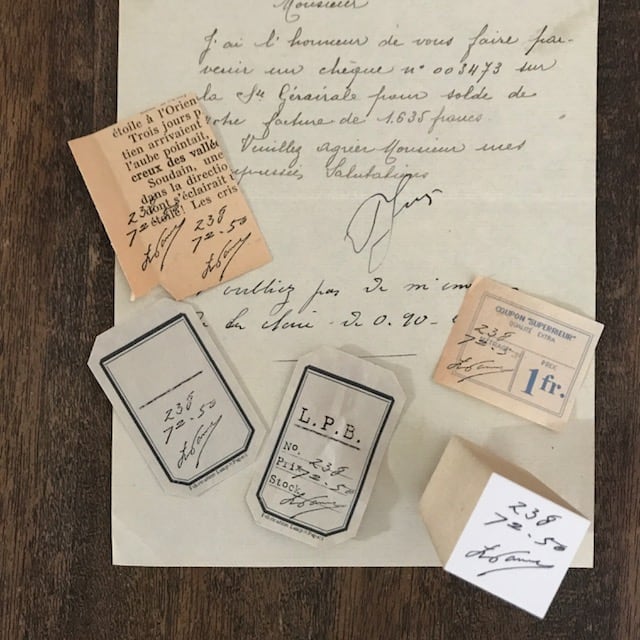 Monsieur
J'ai l'honneur de vous faire par-
venir un chèque n° 003473 sur
la Sté Gérairale pour solde de
otre facture de 1.635 francs
Veuillez agréer Monsieur mes
pressées Salutations
oubliez pas de m'en
de 0.90-
étoile à l'Orien
Trois jours p
tien arrivaient
l'aube pointait
creux des vallée
Soudain, une
dans la directio
dont s'éclairait
étoile! Les cris
238
72.50
238
72.50
COUPON "SUPERIEUR"
QUALITÉ EXTRA
PRIX
1 fr.
238
72.50
238
72.50
L.P.B.
No. 238
Prix 72.50
Stock
238
72.50